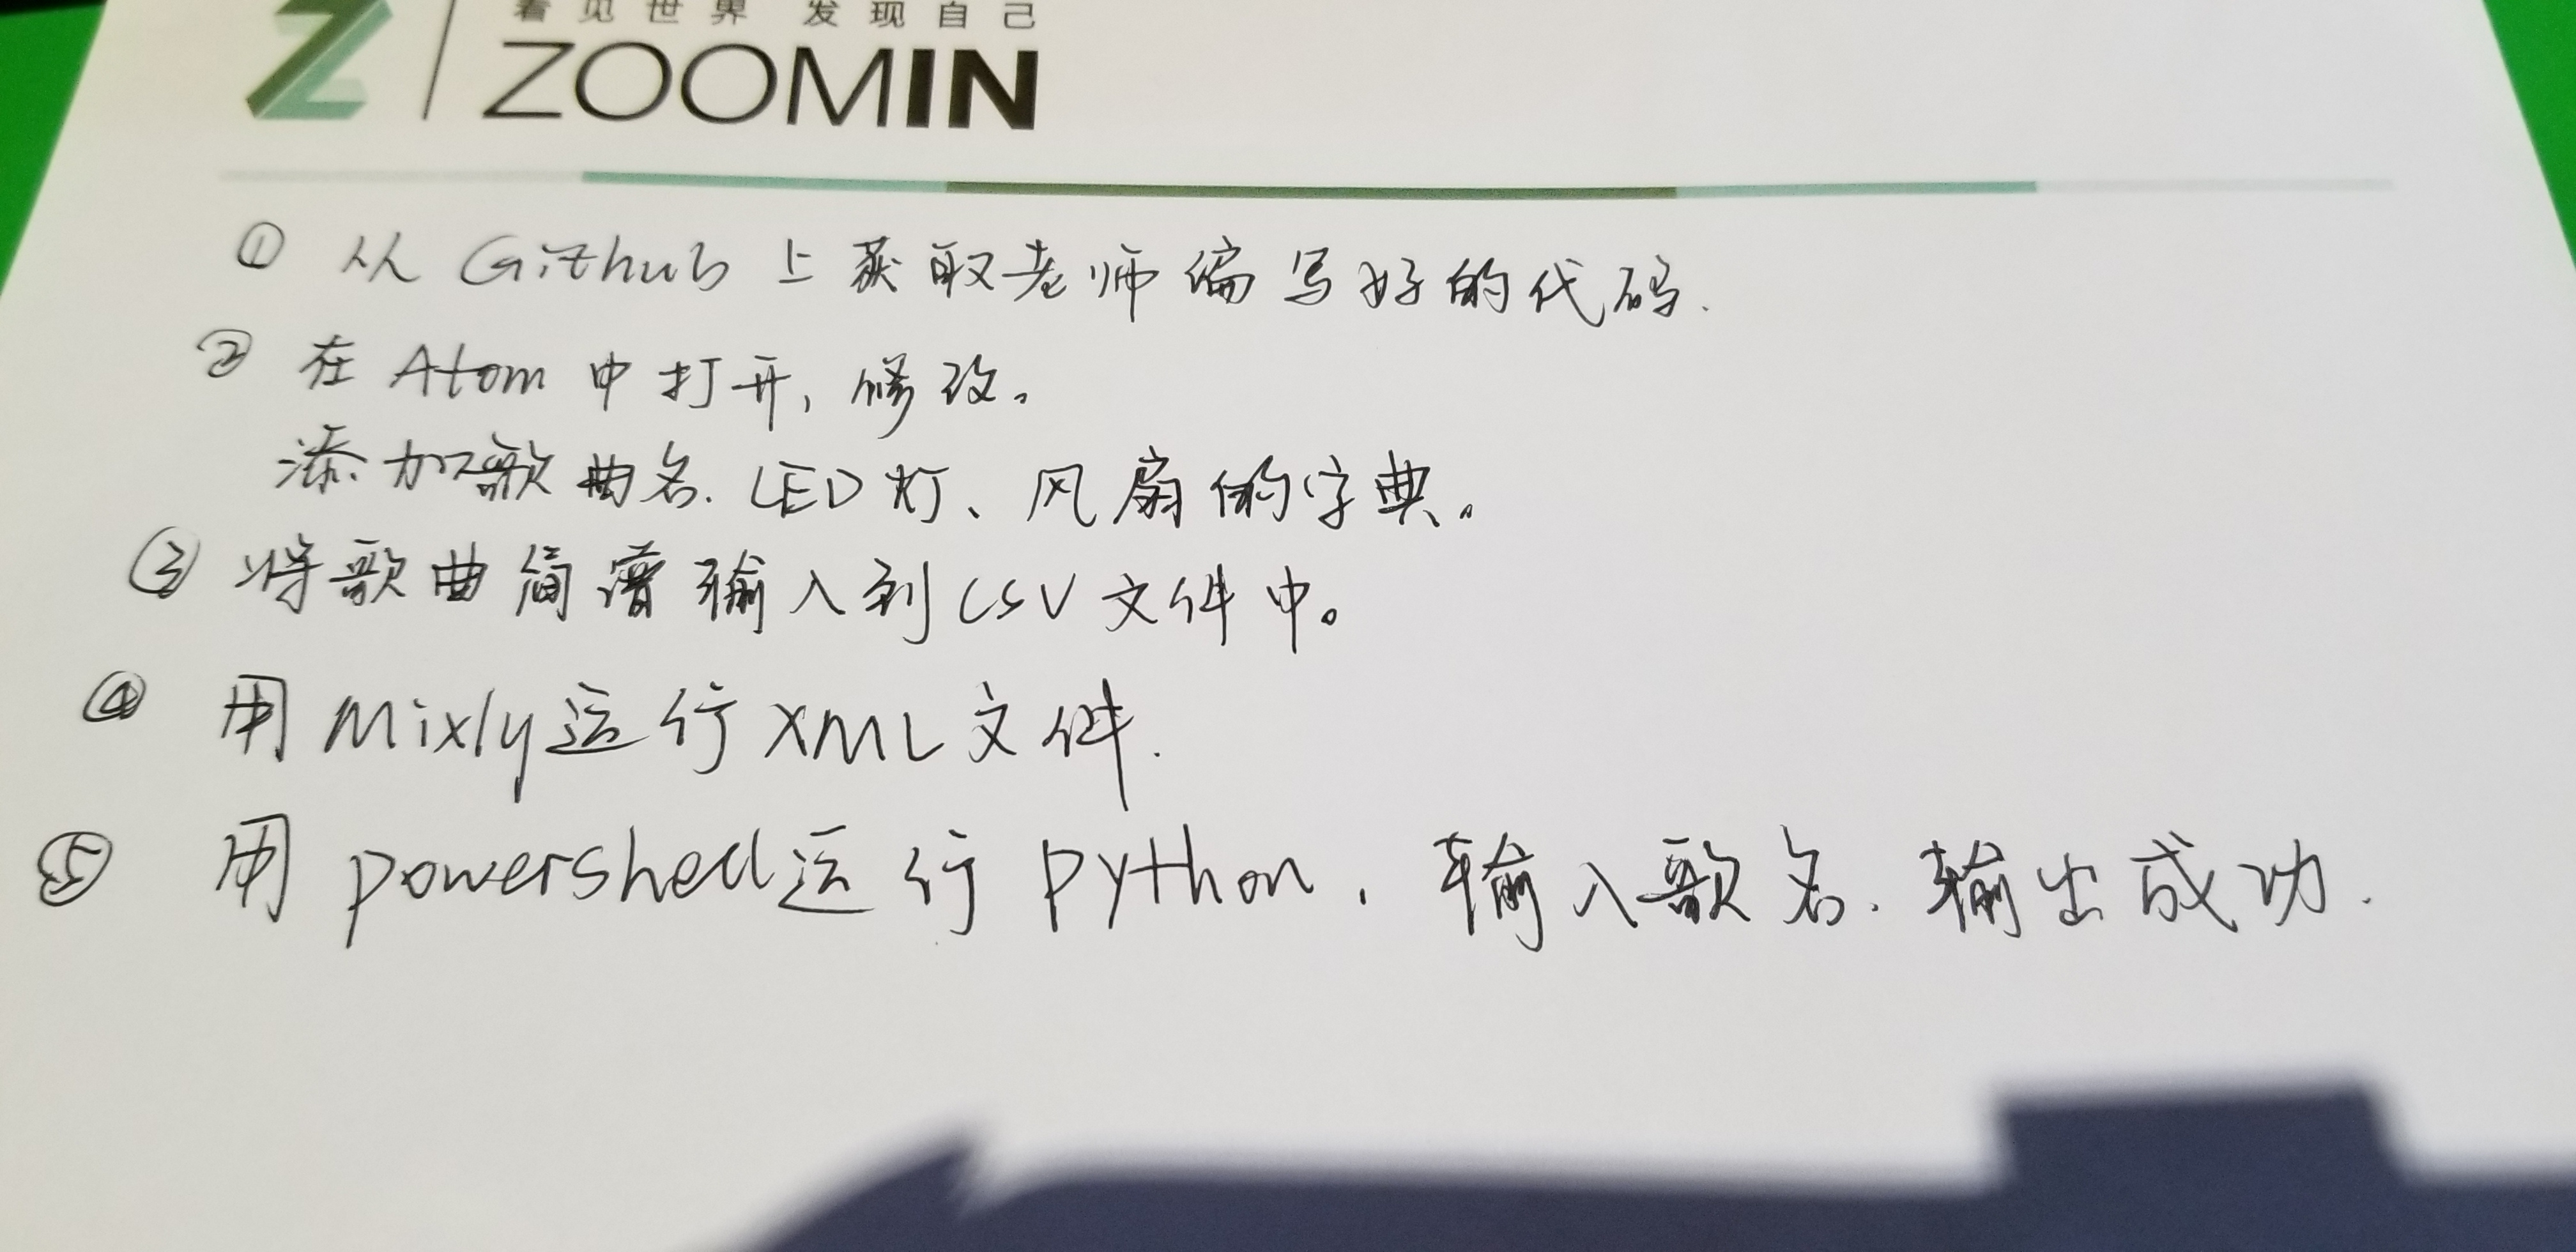 看见世界 发现自己
Z/ZOOMIN
① 从Github上获取老师编写好的代码.
② 在Atom中打开、修改。
添加歌曲名、LED灯、风扇的字典。
③ 将歌曲简谱输入到CSV文件中。
④ 用Mixly运行XML文件.
⑤ 用powershell运行python. 输入歌名. 输出成功.